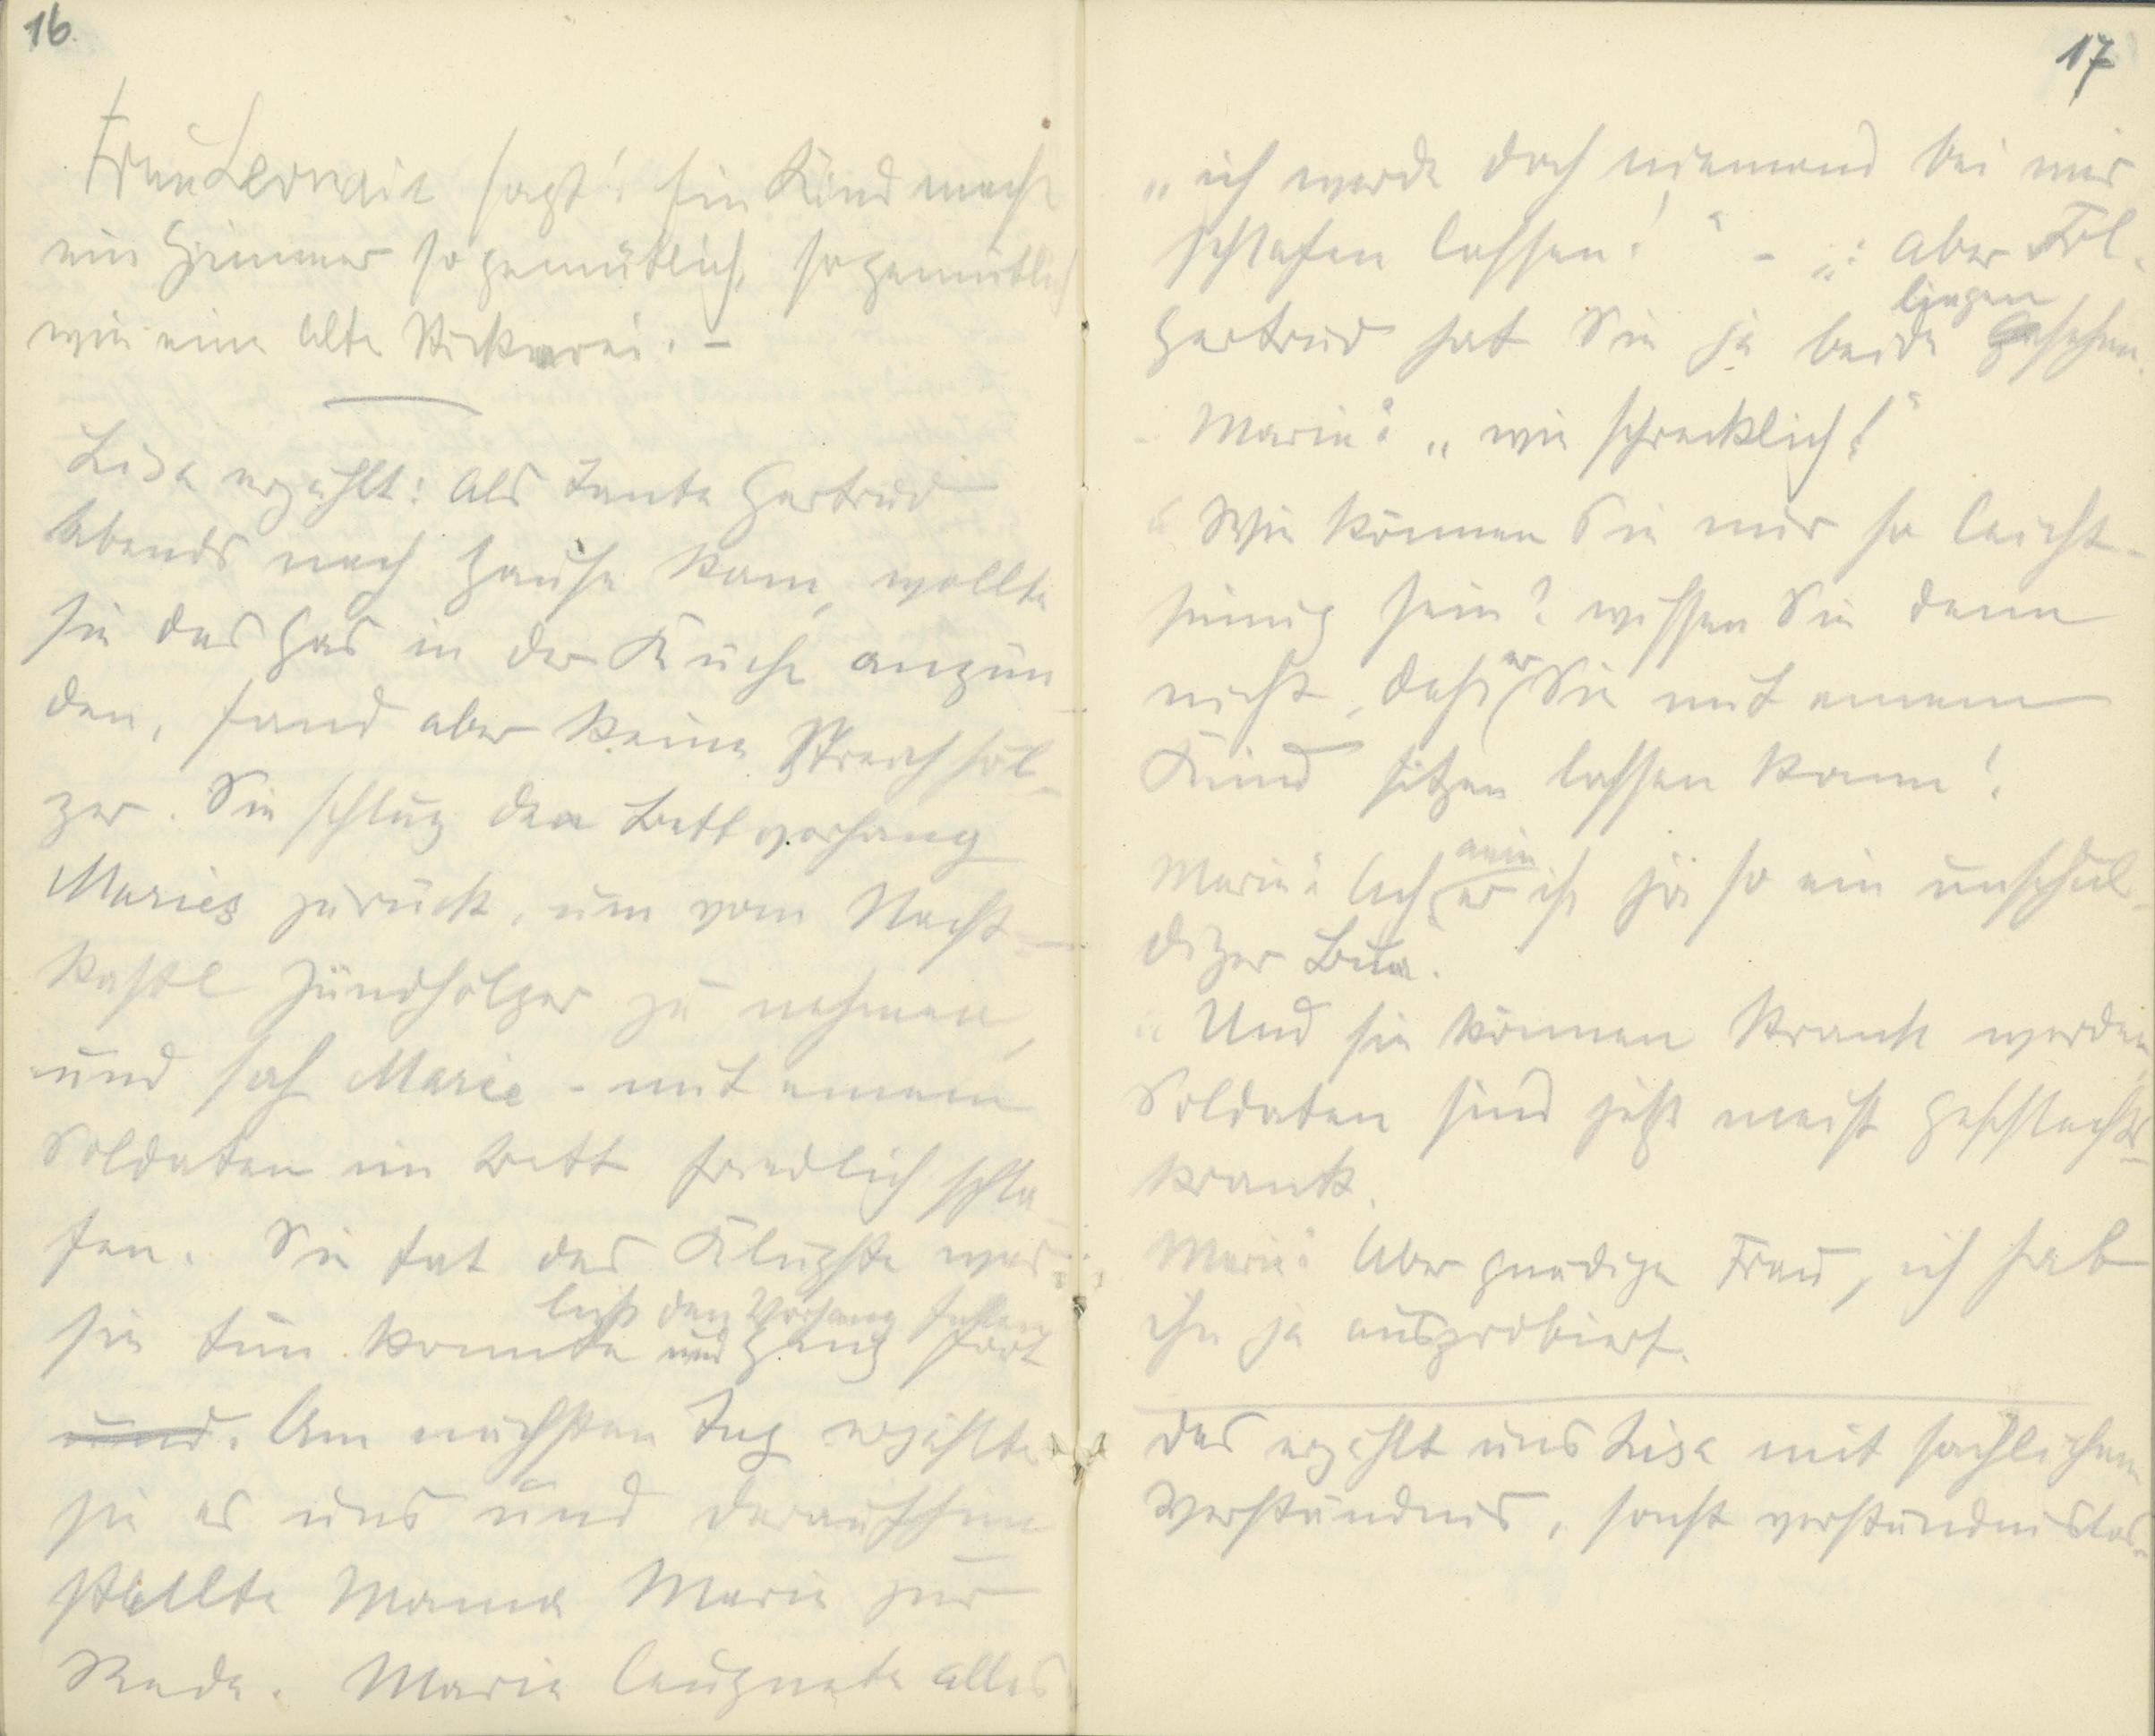 16.
Frau Lervaie sagt: Ein Kind macht
ein Zimmer so gemütlich, so gemütlich
wie eine alte Stickerei. –
Lisa erzählt: Als Tante Gertrud
Abends nach Hause kam, wollte
sie das Gas in der Küche anzün-
den, fand aber keine Streichhöl-
zer. Sie schlug den Bettvorhang
Maries zurück, um vom Nacht-
kastl Zündhölzer zu nehmen,
und sah Marie - mit einem
Soldaten im Bett friedlich schla-
fen. Sie tat das Klügste was
ließ den Vorhang fallen
sie tun konnte und ging fort
und. Am nächsten Tag erzählte
sie es uns und daraufhin
stellte Mama Marie zur
Rede. Marie leugnete alles
17
„ich werde doch niemand bei mir
schlafen lassen!“ – „: Aber Frl.
liegen
Gertrud hat Sie ja beide gesehen.
- Marie: „wie schrecklich!“
„Wie können Sie nur so leicht-
sinnig sein? wissen Sie denn
nicht, dass er Sie mit einem
Kind sitzen lassen kann!
Marie: Ach nein er ist ja so ein unschul-
diger Bua.
„Und sie können krank werden
Soldaten sind jetzt meist geschlechts-
krank.
Marie: Aber gnädige Frau, ich hab
ihn ja ausprobiert.
das erzählt uns Lisa mit sachlichem
Verständnis, sonst verständnislos.